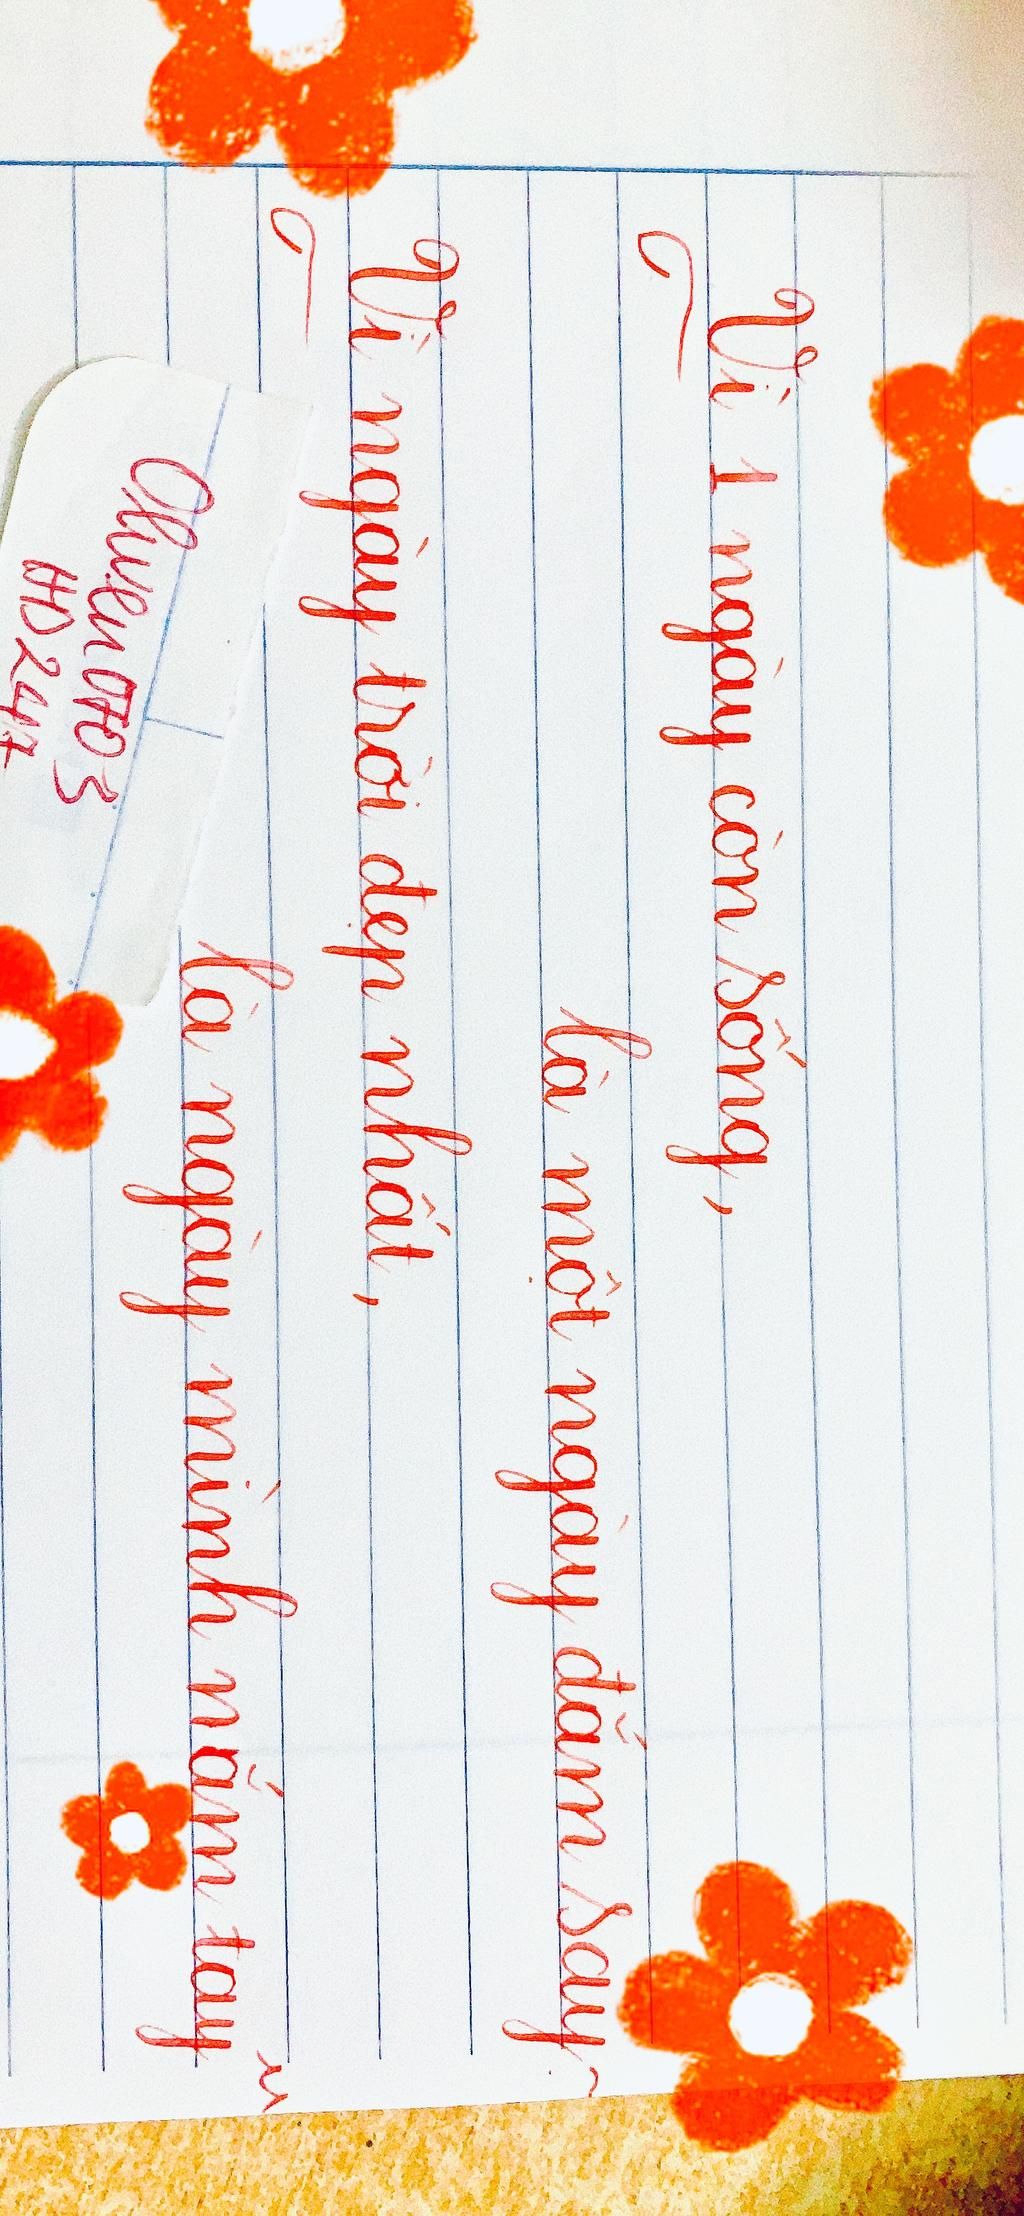 Vì 1 ngày còn sống,
là một ngày đắm say ~
Vì ngày trời đẹp nhất,
là ngày mình nắm tay ~
HD247